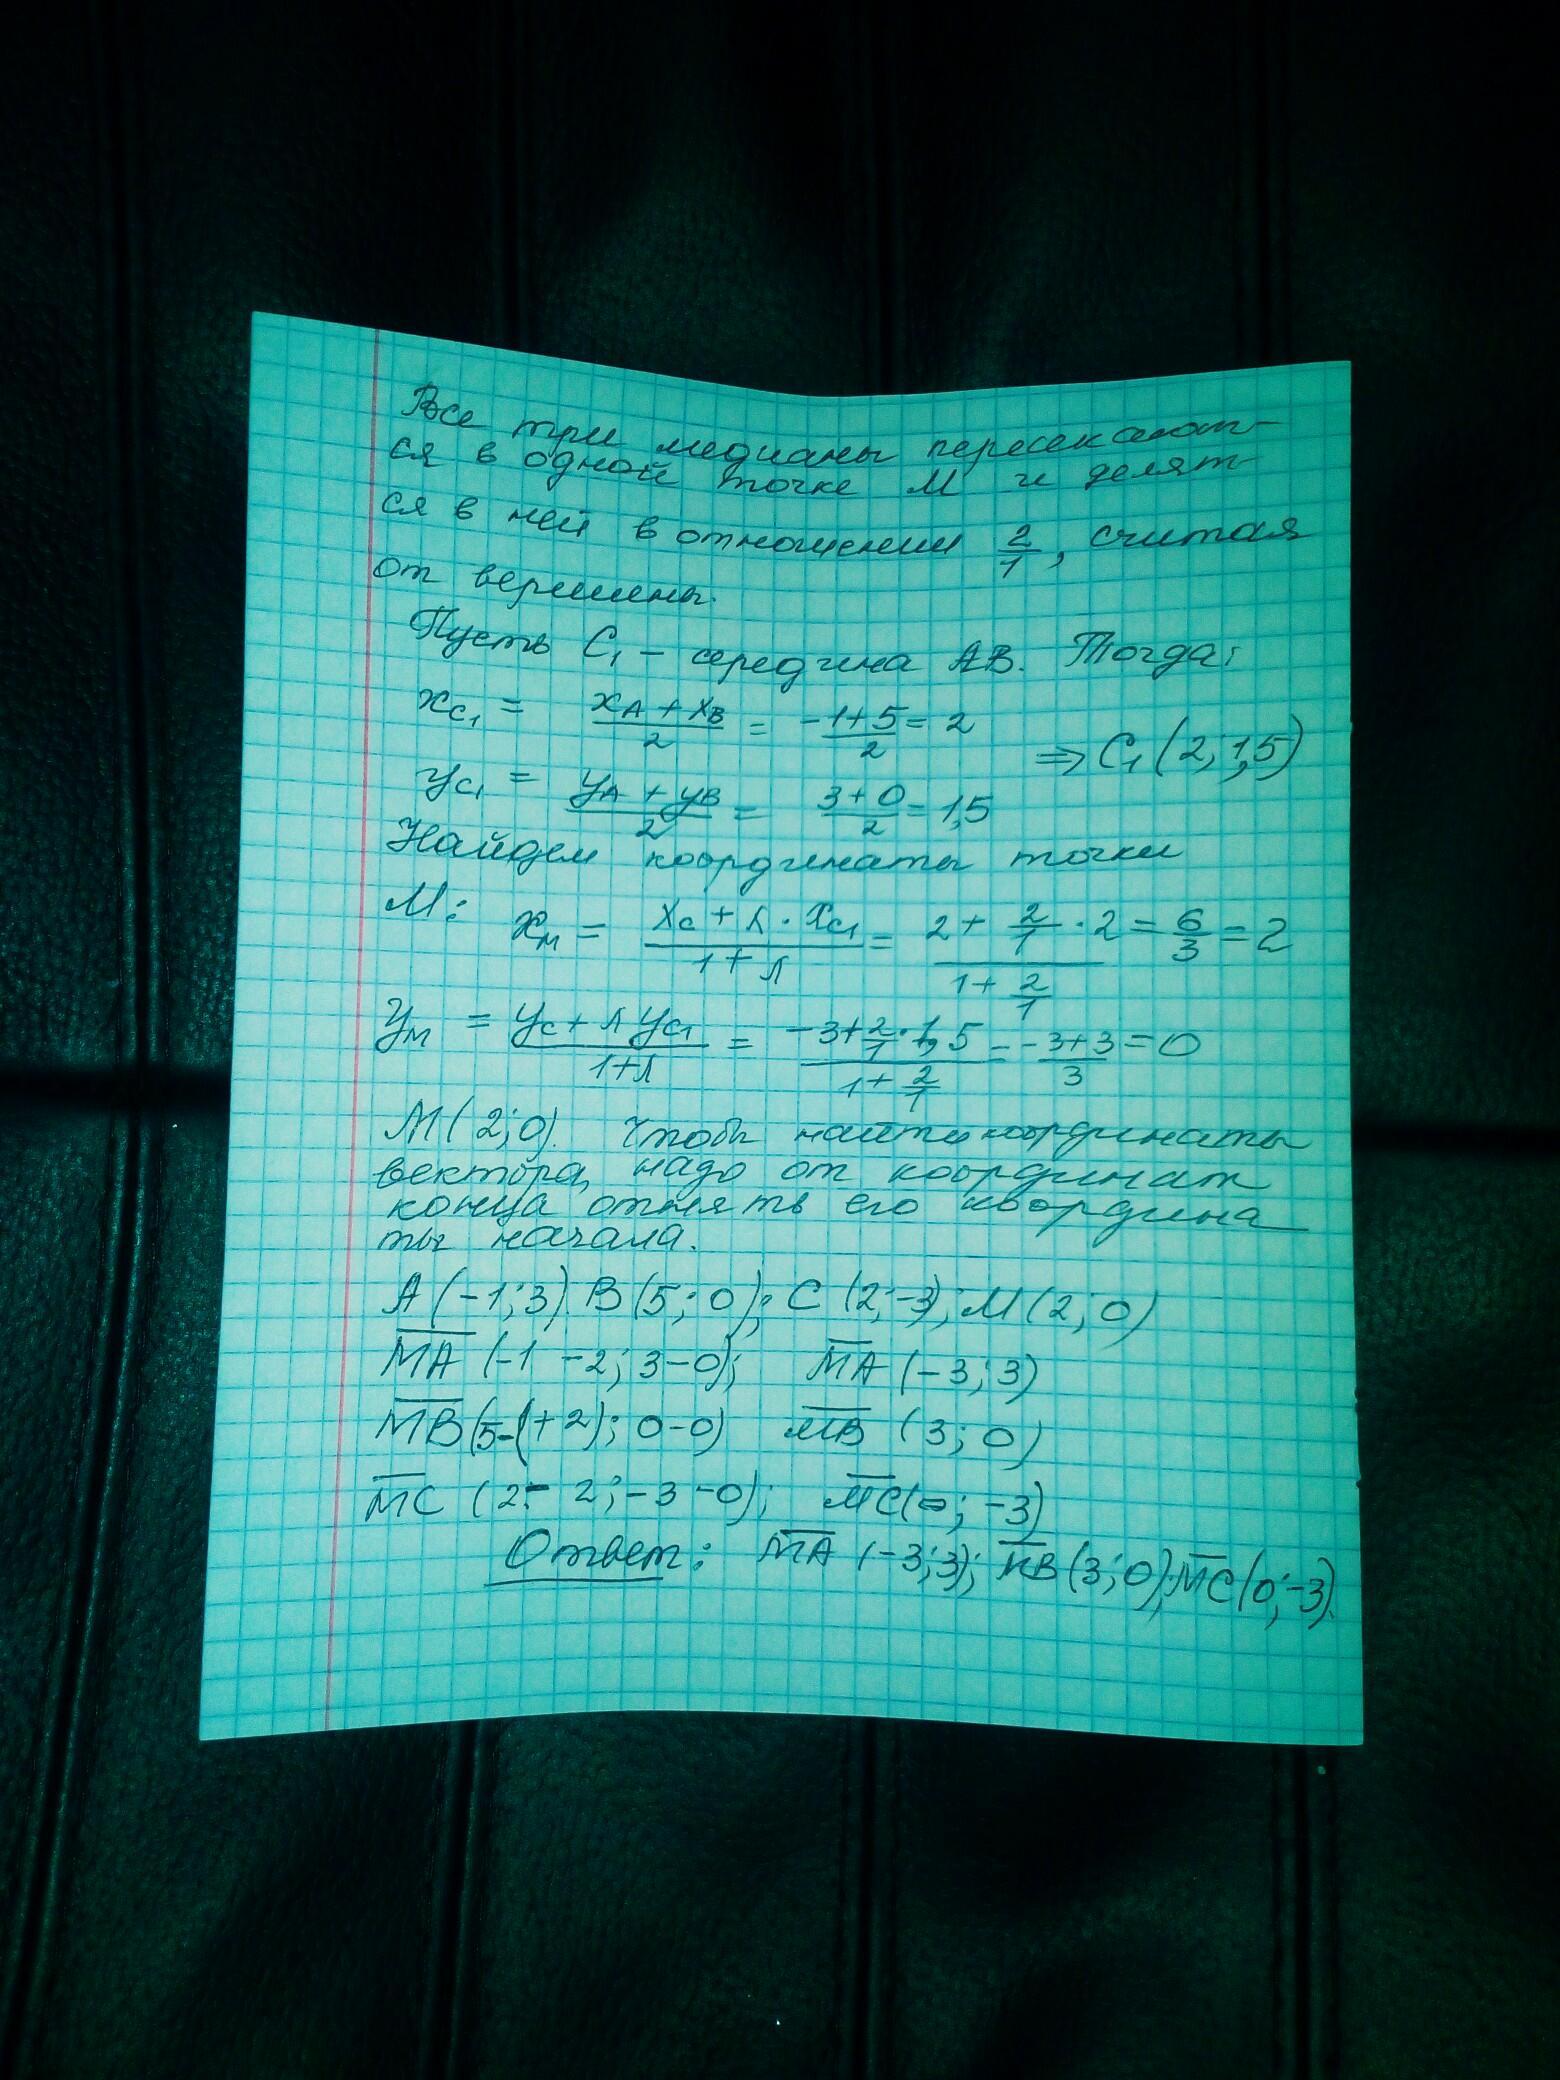 Все три медианы пересекают-
ся в одной точке М и делят-
ся в ней в отношении 2/1, считая
от вершины.
Пусть C₁ – середина АВ. Тогда:
x_C₁ = (x_A + x_B)/2 = (-1+5)/2 = 2
⇒ C₁ (2; 1,5)
y_C₁ = (y_A + y_B)/2 = (3+0)/2 = 1,5
Найдем координаты точки
М: x_M = (x_C + λ · x_C₁)/(1+λ) = (2 + 2/1 · 2)/(1 + 2/1) = 6/3 = 2
y_M = (y_C + λ y_C₁)/(1+λ) = (-3 + 2/1 · 1,5)/(1 + 2/1) = (-3+3)/3 = 0
М(2;0). Чтобы найти координаты
вектора, надо от координат
конца отнять его координа
ты начала.
А(-1;3) В(5; 0); С (2;-3); М(2; 0)
MA (-1 -2; 3-0); MA (-3; 3)
MB (5-(+2); 0-0) MB (3; 0)
MC (2- 2; -3 -0); MC(0; -3)
Ответ: MA (-3;3); MB(3;0); MC(0;-3).